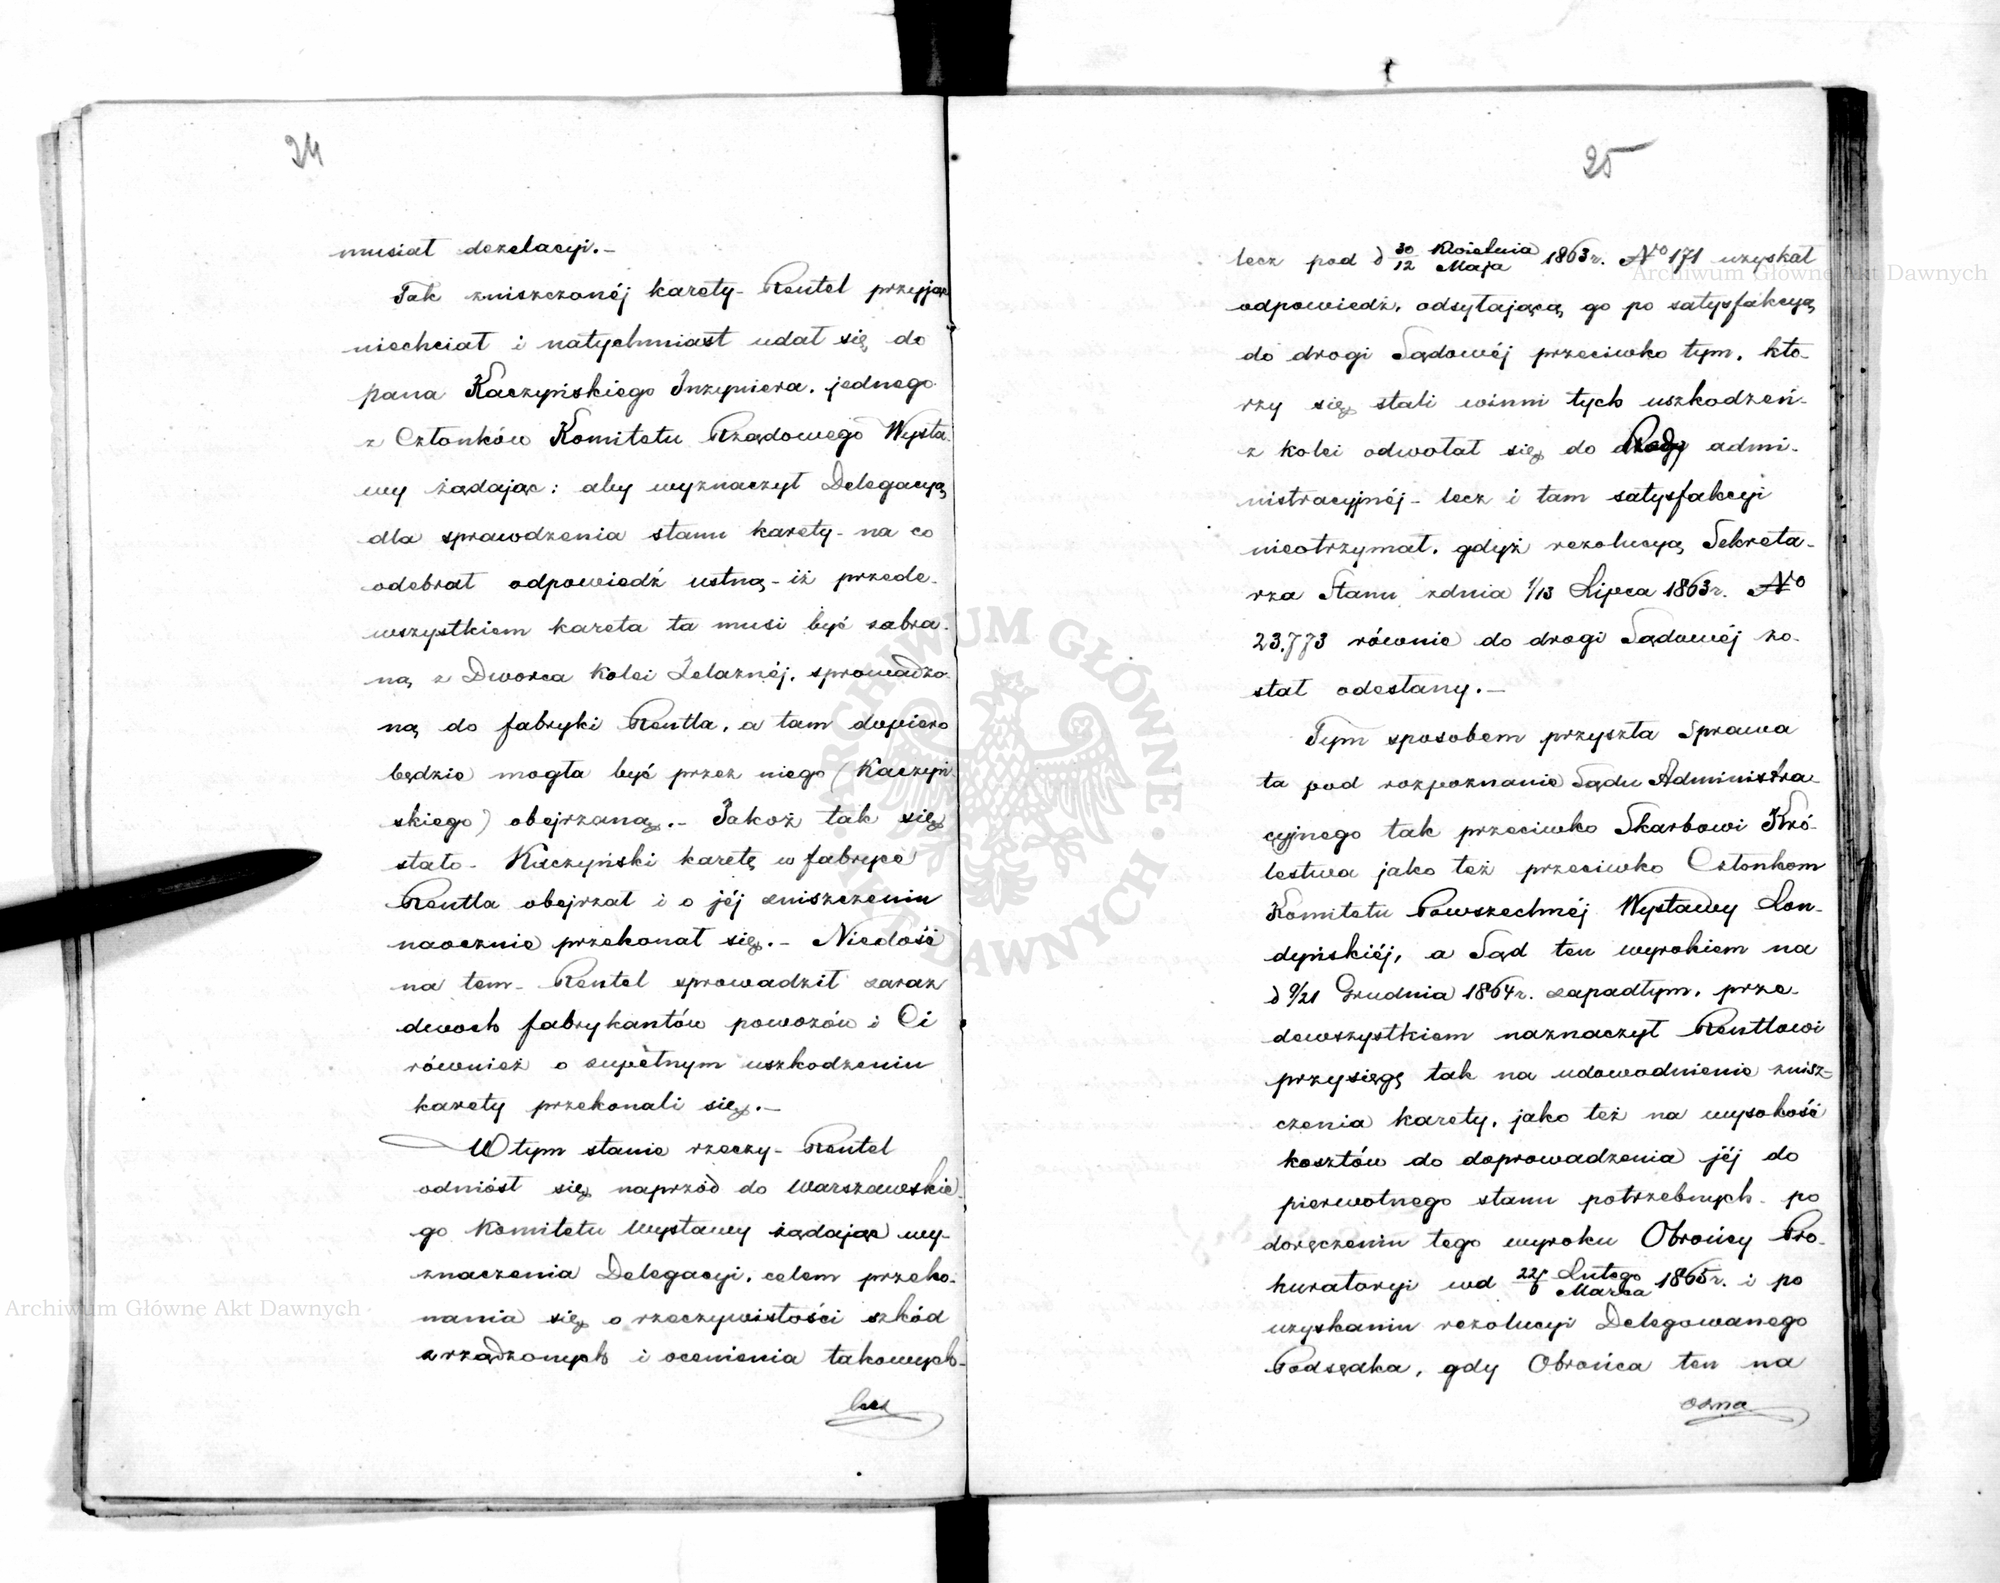 24
musiał dezelacyi.—
Tak zniszczonéj karety- Rentel przyjąć
niechciał i natychmiast udał się do
pana Kaczyńskiego Inżyniera, jednego
z Członków Komitetu Rządowego Wysta-
wy żądając: aby wyznaczył Delegacyą
dla sprawdzenia stanu karety- na co
odebrał odpowiedź ustną- iż przede-
wszystkiem kareta ta musi być zabra-
ną z Dworca Kolei Żelaznéj, sprowadzo-
ną do fabryki Rentla, a tam dopiero
będzie mogła być przez niego (Kaczyń-
skiego) obejrzaną.- Jakoż tak się
stało- Kaczyński karetę w fabryce
Rentla obejrzał i o jéj zniszczeniu
naocznie przekonał się.- Niedość
na tem- Rentel sprowadził zaraz
dwoch fabrykantów powozów i Ci
również o zupełnym uszkodzeniu
karety przekonali się.—
W tym stanie rzeczy- Rentel
odniósł się naprzód do Warszawskie-
go Komitetu Wystawy żądając wy-
znaczenia Delegacyi, celem przeko-
nania się o rzeczywistości szkód
zrządzonych i ocenienia takowych-
lecz
25
lecz pod d 30/12 Kwietnia/Maja 1863r. No 171 uzyskał
odpowiedź, odsyłającą go po satysfakcyą
do drogi Sądowéj przeciwko tym, któ-
rzy się stali winni tych uszkodzeń-
z kolei odwołał się do Rady admi-
nistracyjnéj- lecz i tam satysfakcyi
nieotrzymał, gdyż rezolucyą Sekreta-
rza Stanu zdnia 1/13 Lipca 1863r. No
23.773 równie do drogi Sądowéj zo-
stał odesłany.—
Tym sposobem przyszła Sprawa
ta pod rozpoznanie Sądu Administra-
cyjnego tak przeciwko Skarbowi Kró-
lestwa jako też przeciwko Członkom
Komitetu Powszechnéj Wystawy Lon-
dyńskiéj, a Sąd ten wyrokiem na
d 9/21 Grudnia 1864r. zapadłym, prze-
dewszystkiem naznaczył Rentlowi
przysięgę tak na udowodnienie znisz-
czenia karety, jako też na wysokość
kosztów do doprowadzenia jéj do
pierwotnego stanu potrzebnych- po
doręczeniu tego wyroku Obrońcy Pro-
kuratoryi wd 22/6 Lutego/Marca 1865r. i po
uzyskaniu rezolucyi Delegowanego
Podsędka, gdy Obrońca ten na
ozna
Archiwum Główne Akt Dawnych
Archiwum Główne Akt Dawnych
ARCHIWUM GŁÓWNE AKT DAWNYCH